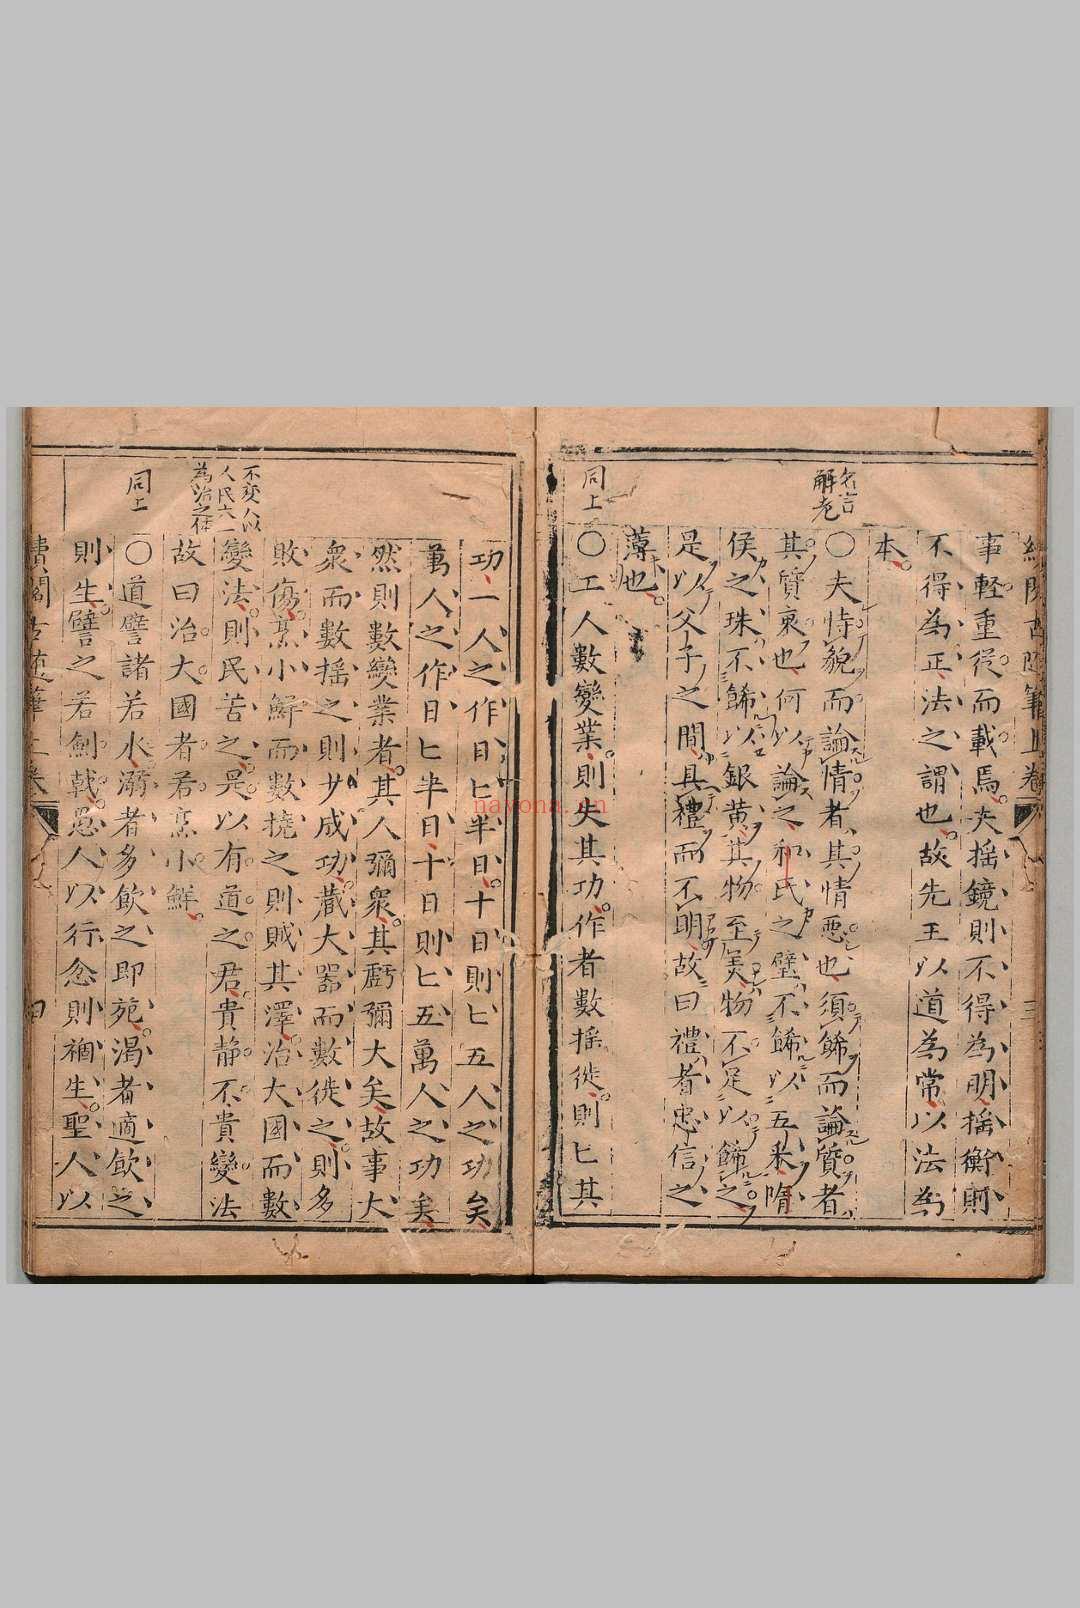 事軽重從而載焉夫揺鏡則不得為明揺衡則
不得為正法之謂也故先王以道為常以法為
本
名言
解老
〇夫恃䫉而論情者其情悪也須餙而論質者
其質衰也何以論之和氏之璧不餙以五釆隋
侯之珠不餙以銀黄其物至美物不足以餙之
是以父子之間具禮而不明故曰禮者忠信之
薄也
同上
〇工人數變業則失其功作者數揺徙則匕其
功一人之作日匕半日十日則匕五人之功矣
萬人之作日匕半日十日則匕五萬人之功矣
然則數變業者其人彌衆其虧彌大矣故事大
衆而數揺之則少成功蔵大噐而數徙之則多
敗傷烹小鮮而數撓之則賊其澤治大國而數
不変人以
人民六一
為治之体
變法則民苦之是以有道之君貴静不貴變法
故曰治大國者若烹小鮮
同上
〇道譬諸若水溺者多飲之即苑渇者適飲之
則生譬之若劎㦸愚人以行忿則禍生聖人以
navona.cn